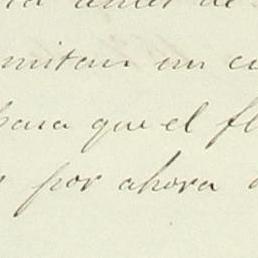 antes de
mitan un
para que el fl
por ahora